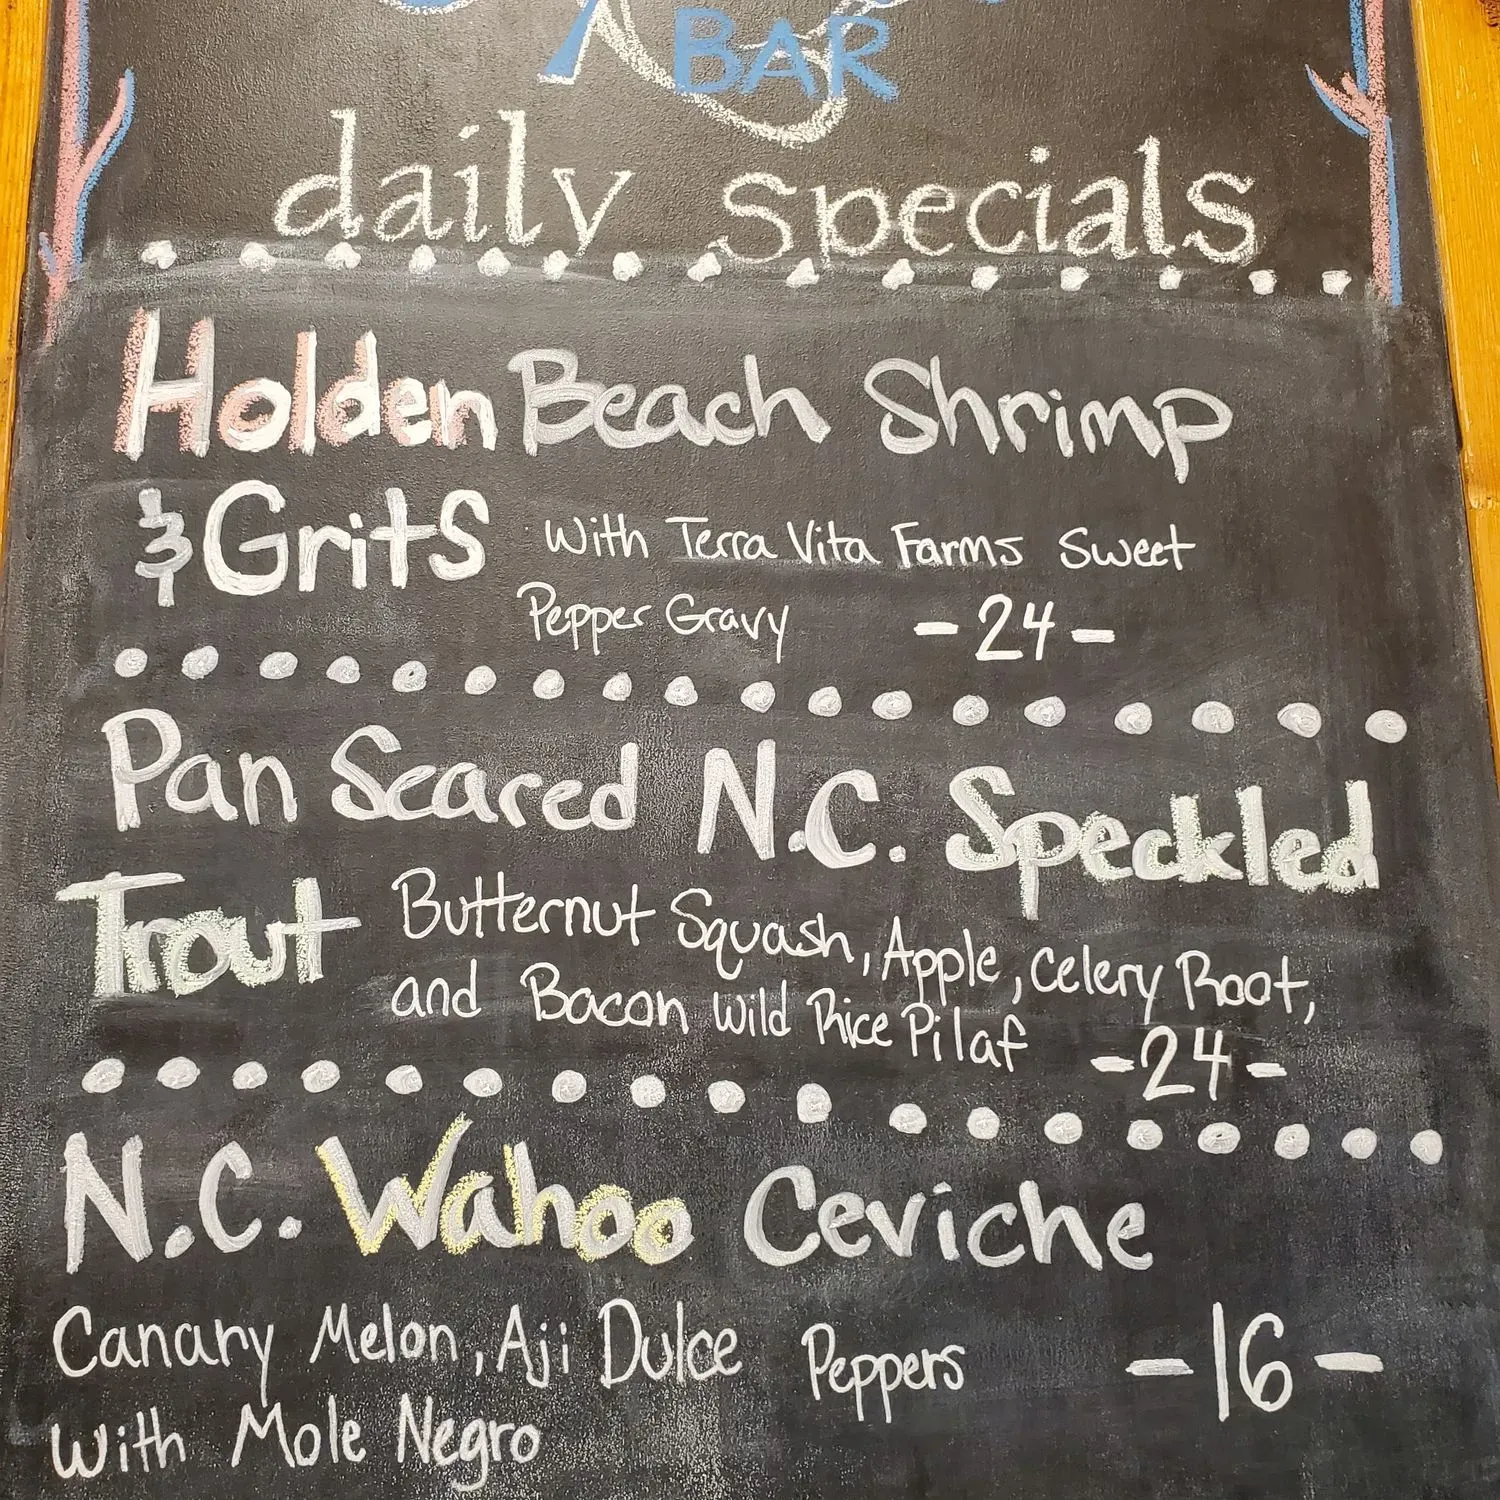 BAR
daily specials
Holden Beach Shrimp
& Grits With Terra Vita Farms Sweet
Pepper Gravy -24-
Pan Seared N.C. Speckled
Trout Butternut Squash, Apple, Celery Root,
and Bacon Wild Rice Pilaf -24-
N.C. Wahoo Ceviche
Canary Melon, Aji Dulce Peppers -16-
With Mole Negro